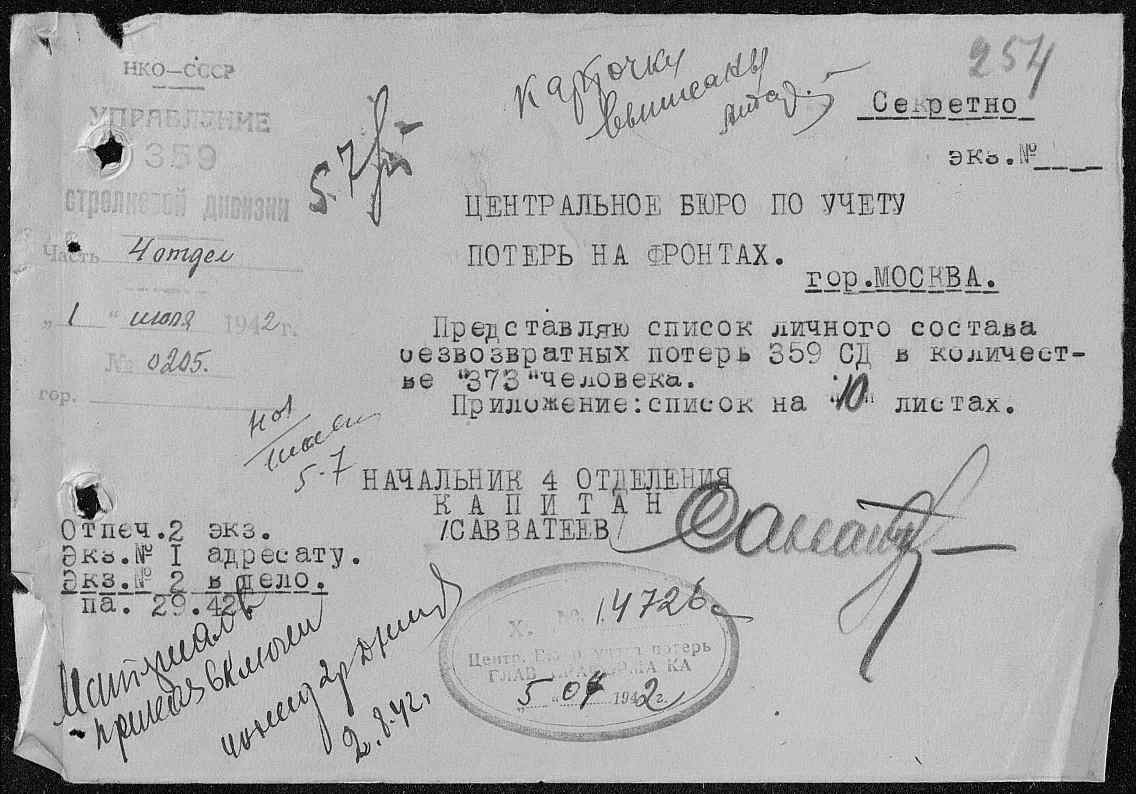 254
НКО—СССР
УПРАВЛЕНИЕ
359
стрелковой дивизии
Часть 4 отдел
„ 1 “ июля 1942г.
№ 0205.
гор.
Карточки
выписаны
5.7
Секретно
экз.№
ЦЕНТРАЛЬНОЕ БЮРО ПО УЧЕТУ
ПОТЕРЬ НА ФРОНТАХ.
гор.МОСКВА.
Представляю список личного состава
безвозвратных потерь 359 СД в количест-
ве "373"человека.
Приложение:список на "10" листах.
5.7
НАЧАЛЬНИК 4 ОТДЕЛЕНИЯ
КАПИТАН
/САВВАТЕЕВ/
Отпеч.2 экз.
Экз.№ I адресату.
Экз.№ 2 в дело.
па. 29.42
Материал в
приказ включен
2.8.42г.
Х. № 14726с
Центр. Бюро учета потерь
ГЛАВ УПРАФОРМА КА
5 " 07 1942г.